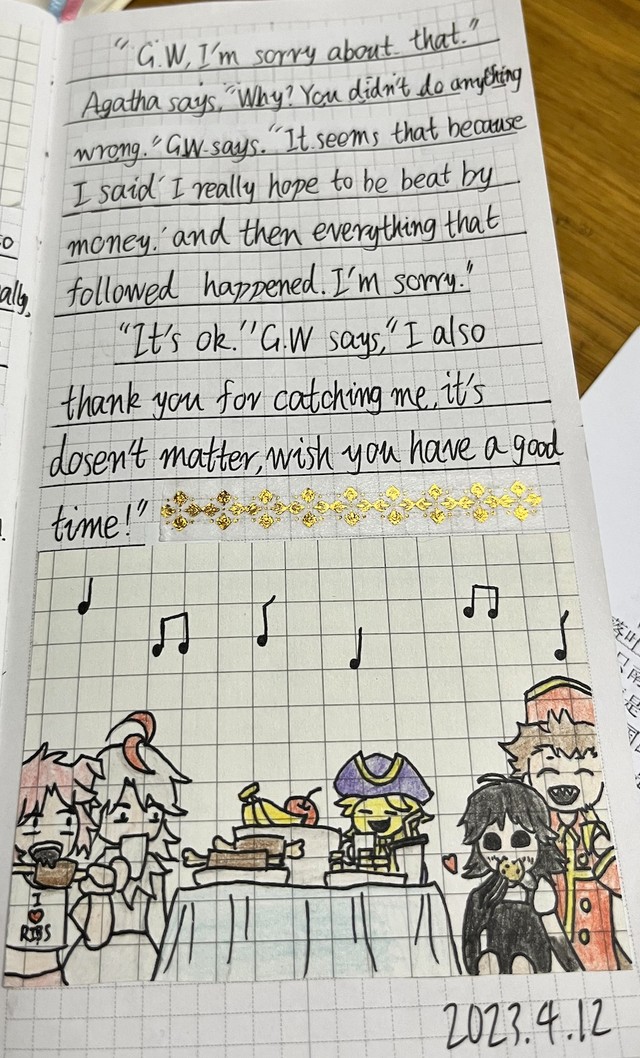 "G.W, I'm sorry about that."
Agatha says, "Why? You didn't do anything
wrong." G.W says. "It seems that because
I said 'I really hope to be beat by
money.' and then everything that
followed happened. I'm sorry."
"It's ok." G.W says, "I also
thank you for catching me, it's
dosen't matter, wish you have a good
time!"
I
RIBS
2023.4.12